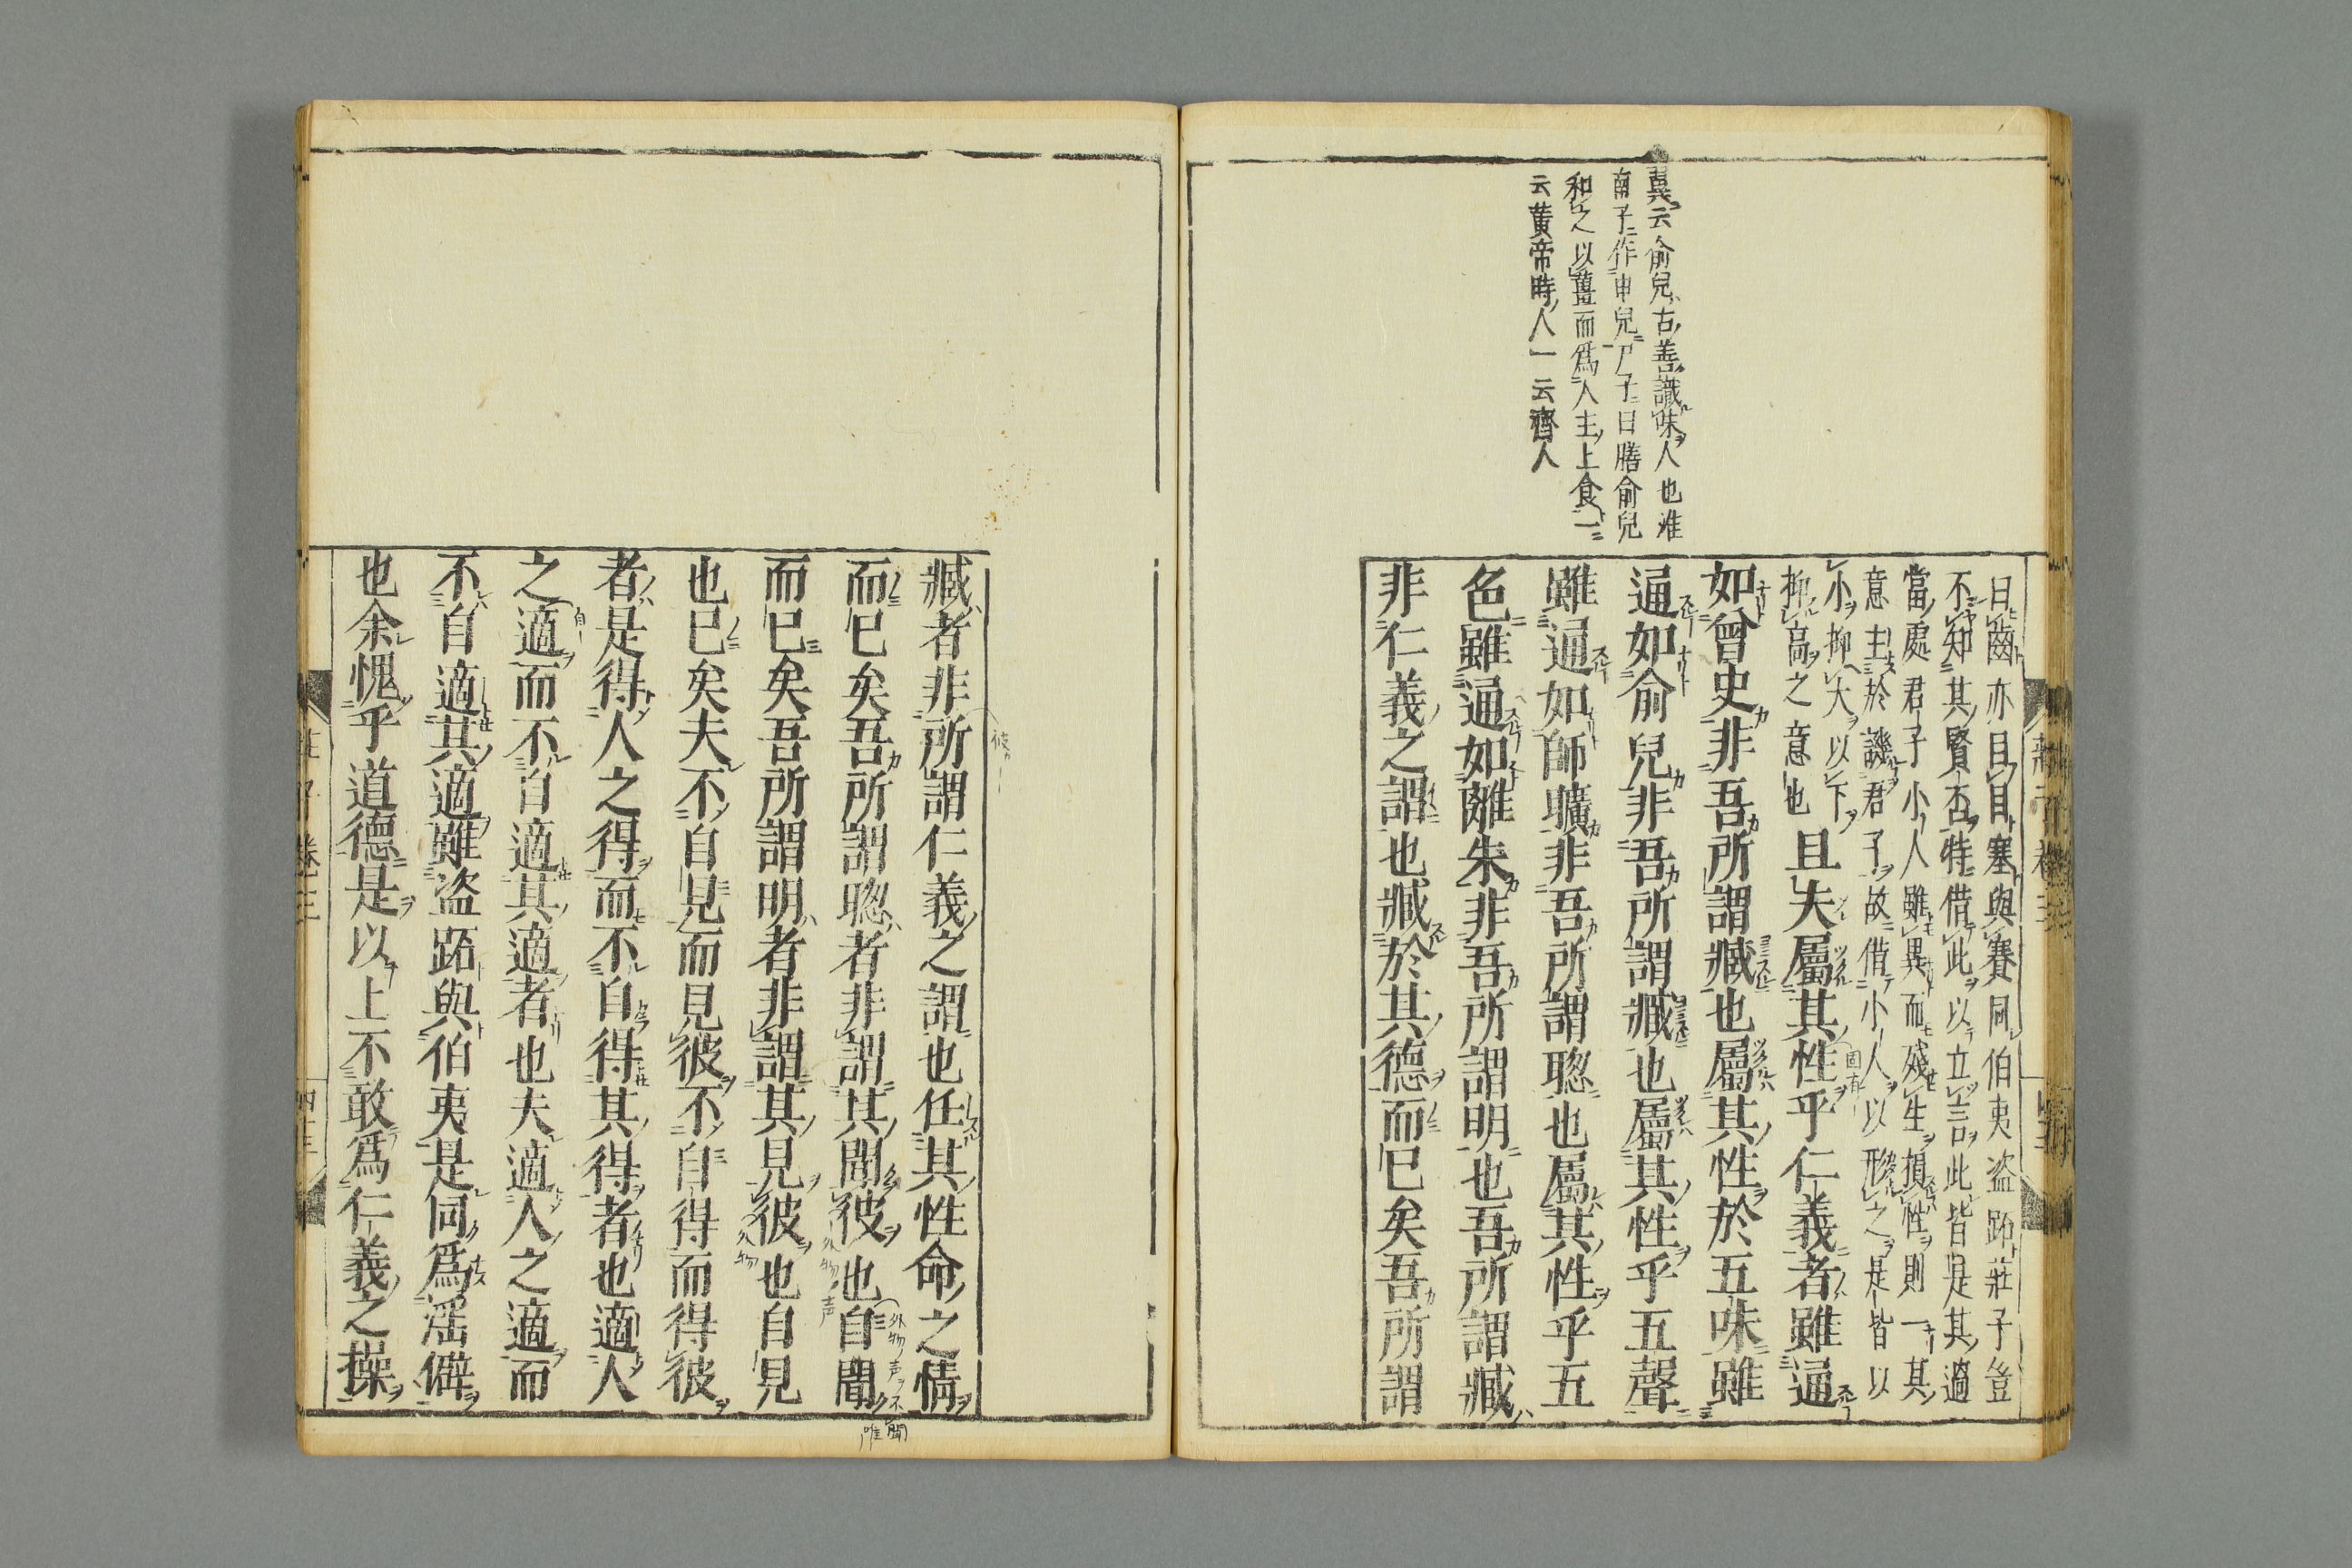 翼云俞兒古善識味人也淮
南子作申兒尸子曰膳俞兒
和之以薑而爲人主上食一
云黃帝時人一云齊人
曰齒亦目目塞與賽同伯夷盜跖莊子豈
不知其賢否特借此以立言此皆是其適
當處君子小人雖異而殘生損性則一其
意主於譏君子故借小人以形之是皆以
小抑大以下
抑高之意也
且夫屬其性乎仁義者雖通
如曾史非吾所謂臧也屬其性於五味雖
通如俞兒非吾所謂臧也屬其性乎五聲
雖通如師曠非吾所謂聰也屬其性乎五
色雖通如離朱非吾所謂明也吾所謂臧
非仁義之謂也臧於其德而已矣吾所謂
臧者非所謂仁義之謂也任其性命之情
而已矣吾所謂聰者非謂其聞彼也自聞
而已矣吾所謂明者非謂其見彼也自見
也已矣夫不自見而見彼不自得而得彼
者是得人之得而不自得其得者也適人
之適而不自適其適者也夫適人之適而
不自適其適雖盜跖與伯夷是同爲淫僻
也余愧乎道德是以上不敢爲仁義之操